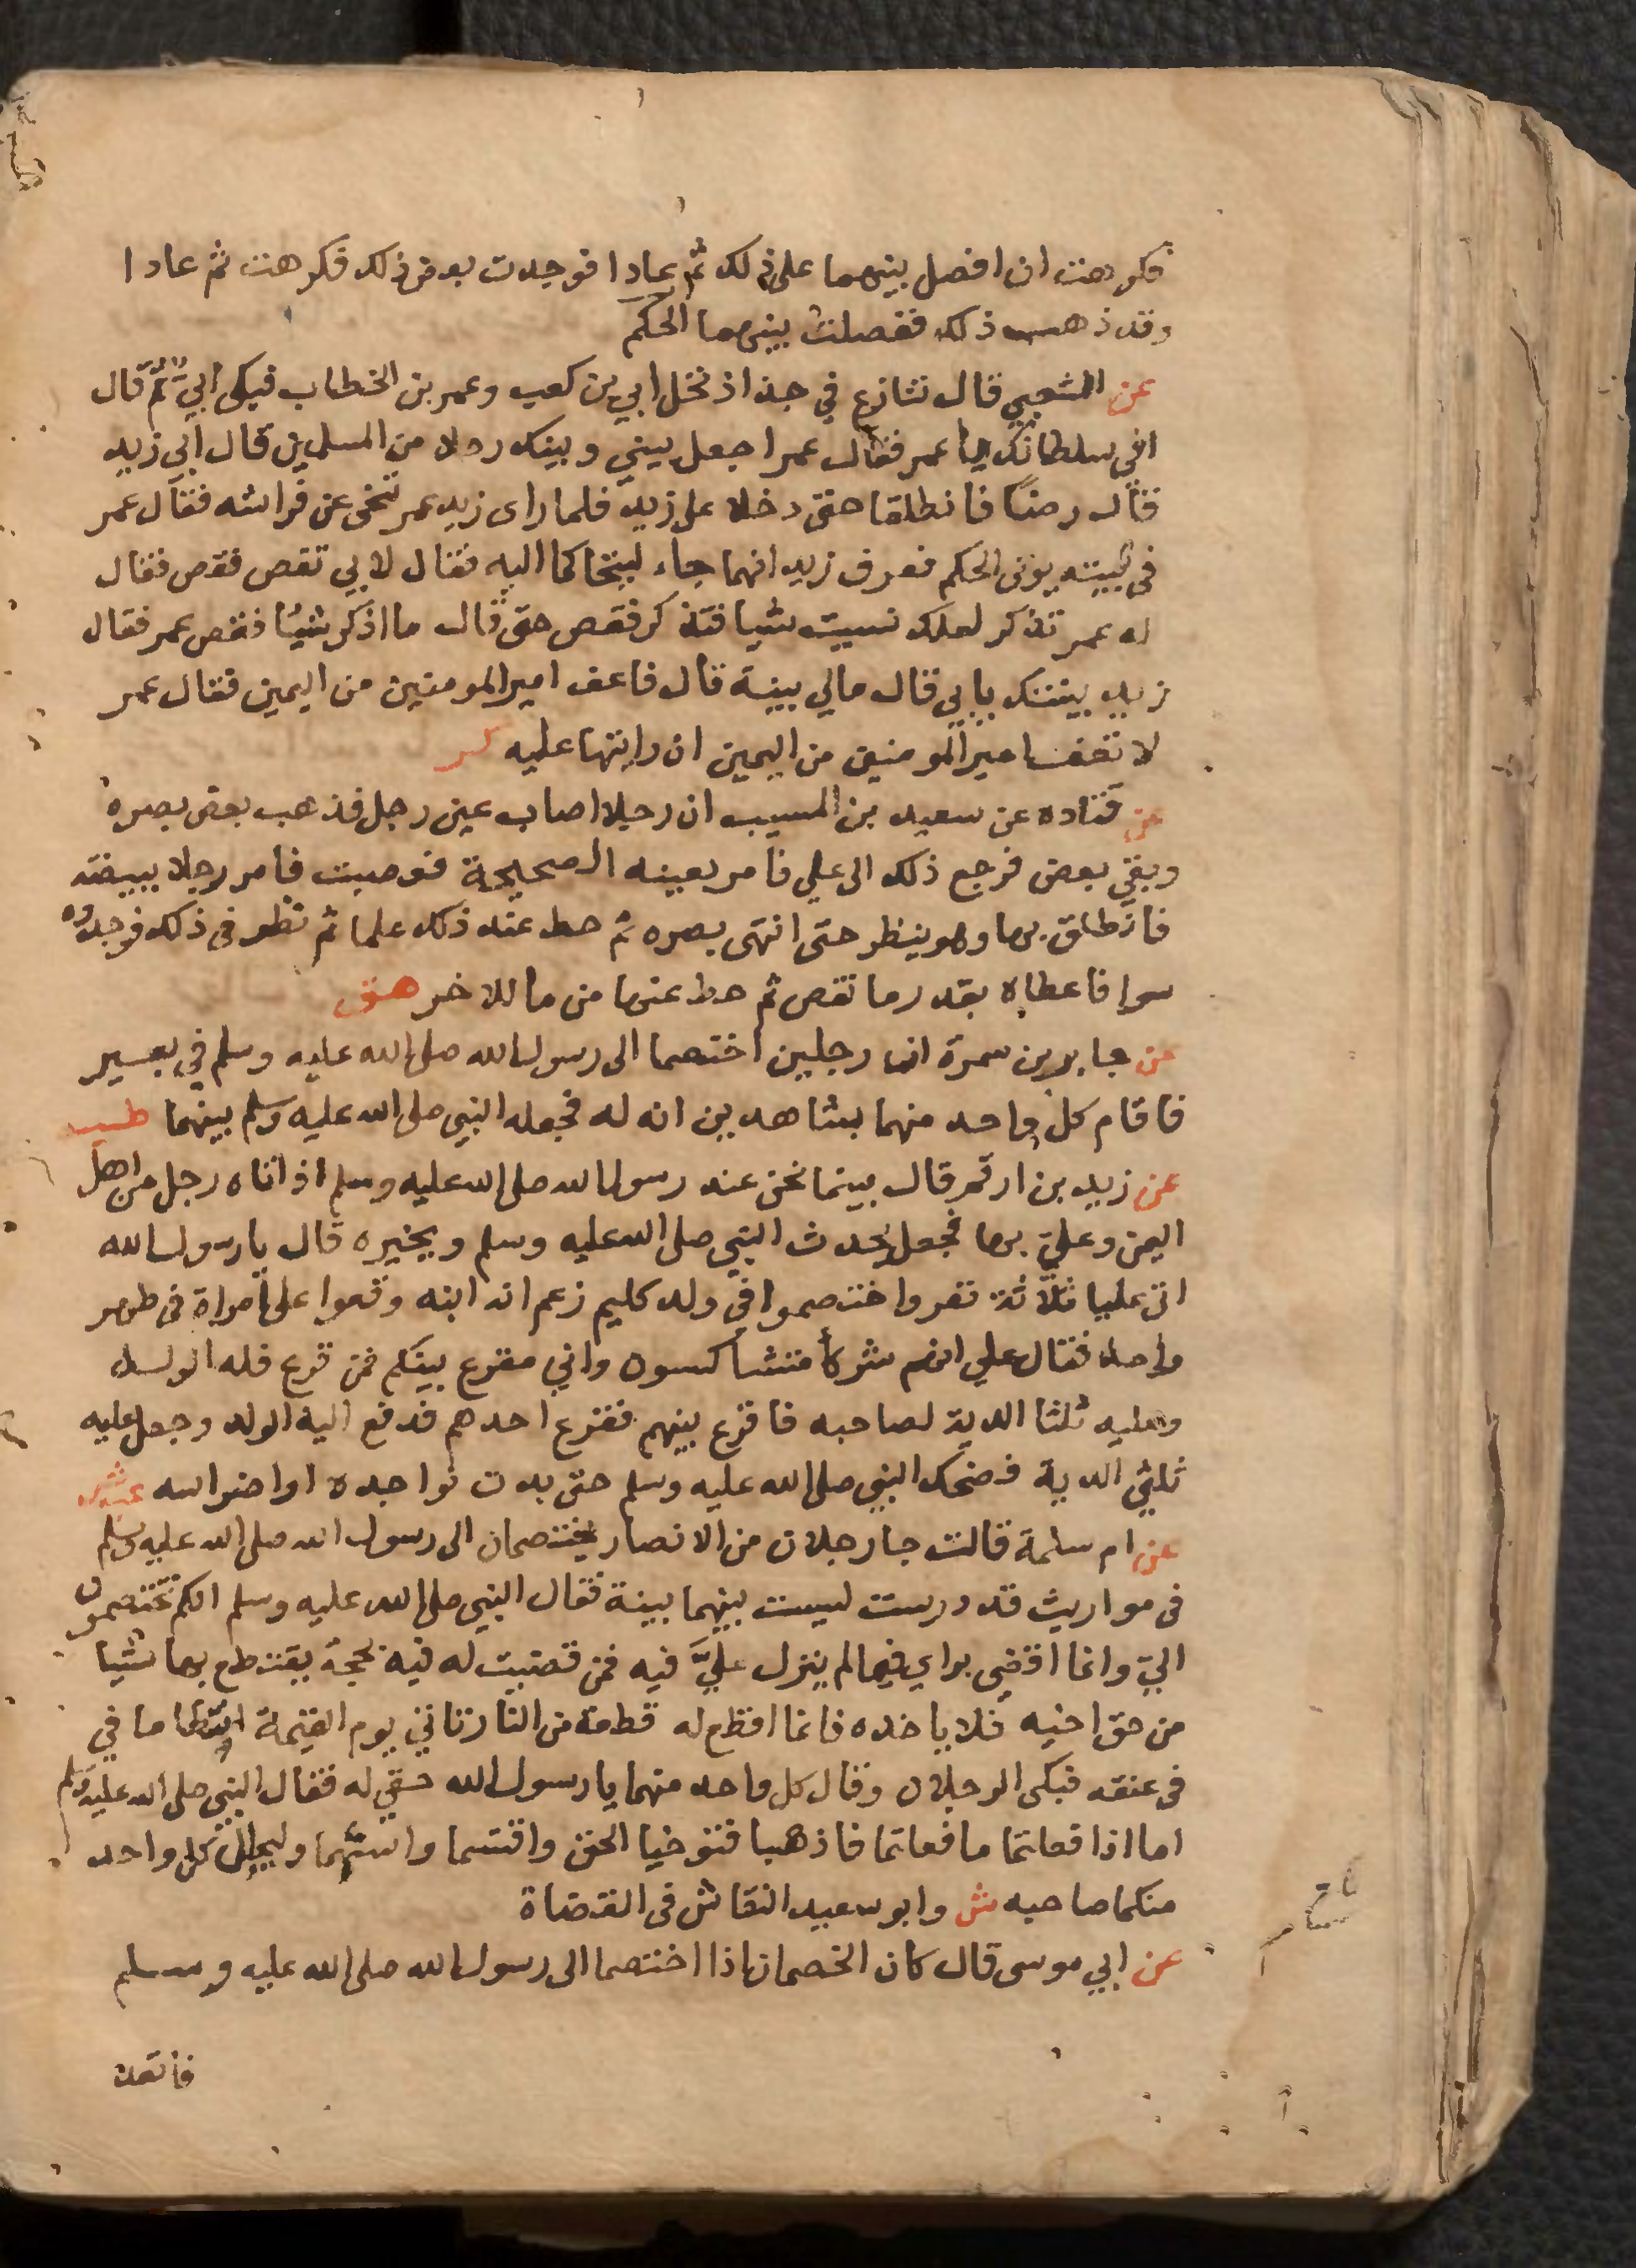 فكرهت ان افصل بينهما على ذلك ثم عادا فوجدت بعض ذلك فكرهت ثم عادا
وقد ذهب ذلك ففصلت بينهما الحكم
عن الشعبي قال تنازع في جذاذ نخل ابي بن كعب وعمر بن الخطاب فبكى ابي ثم قال
افي سلطانك يا عمر فقال عمر اجعل بيني وبينك رجلا من المسلمين قال ابي زيد
فقال رضا فانطلقا حتى دخلا على زيد فلما راى زيد عمر تنحى عن فراشه فقال عمر
في بيته يوتى الحكم فعرف زيد انهما جاء ليتحاكما اليه فقال لابي تقص فقص فقال
له عمر تذكر لعلك نسيت شيا فتذكر فقص حتى قال ما اذكر شيئا فقص عمر فقال
زيد بينتك يا ابي فقال مالي بينة قال فاعف امير المومنين من اليمين فقال عمر
لا تعف امير المومنين من اليمين ان رايتها عليه كر
عن قتاده عن سعيد بن المسيب ان رجلا اصاب عين رجل فذهب بعض بصره
وبقي بعض فرجع ذلك الى علي فامر بعينه الصحيحة فعصبت فامر رجلا ببيضة
فانطلق بها وهو ينظر حتى انتهى بصره ثم حط عند ذلك علما ثم نظر في ذلك فوجدوه
سوا فاعطاه بقدر ما نقص ثم حط عنها من ما للاخر هق
عن جابر بن سمرة ان رجلين اختصما الى رسول الله صلى الله عليه وسلم في بعير
فاقام كل واحد منهما بشاهدين انه له فجعله النبي صلى الله عليه وسلم بينهما طب
عن زيد بن ارقم قال بينما نحن عند رسول الله صلى الله عليه وسلم اذ اتاه رجل من اهل
اليمن وعلي بها فجعل يحدث النبي صلى الله عليه وسلم ويخبره قال يا رسول الله
اتى عليا ثلاثة نفر واختصموا في ولد كليم زعم انه ابنه وقعوا على امراة في طهر
واحد فقال علي انتم شركا متشاكسون واني مقرع بينكم فمن قرع فله الولد
وعليه ثلثا الدية لصاحبه فاقرع بينهم فقرع احدهم فدفع اليه الولد وجعل عليه
ثلثي الدية فضحك النبي صلى الله عليه وسلم حتى بدت نواجده او اضراسه عبش
عن ام سلمة قالت جا رجلان من الانصار يختصمان الى رسول الله صلى الله عليه وسلم
في مواريث قد درست ليست بينهما بينة فقال النبي صلى الله عليه وسلم انكم تختصمون
الي وانما اقضي براي فيما لم ينزل علي فيه فمن قضيت له فيه بحجة يقتطع بها شيا
من حق اخيه فلا ياخده فانما اقطع له قطعة من النار تاتي يوم القيمة اسطاما في
في عنقه فبكى الرجلان وقال كل واحد منهما يا رسول الله حقي له فقال النبي صلى الله عليه وسلم
اما اذا فعلتما ما فعلتما فاذهبا فتوخيا الحق واقتسما واستهما وليحلل كل واحد
منكما صاحبه ش وابو سعيد النقاش في القضاة
عن ابي موسى قال كان الخصمان اذا اختصما الى رسول الله صلى الله عليه وسلم
فاتعدا